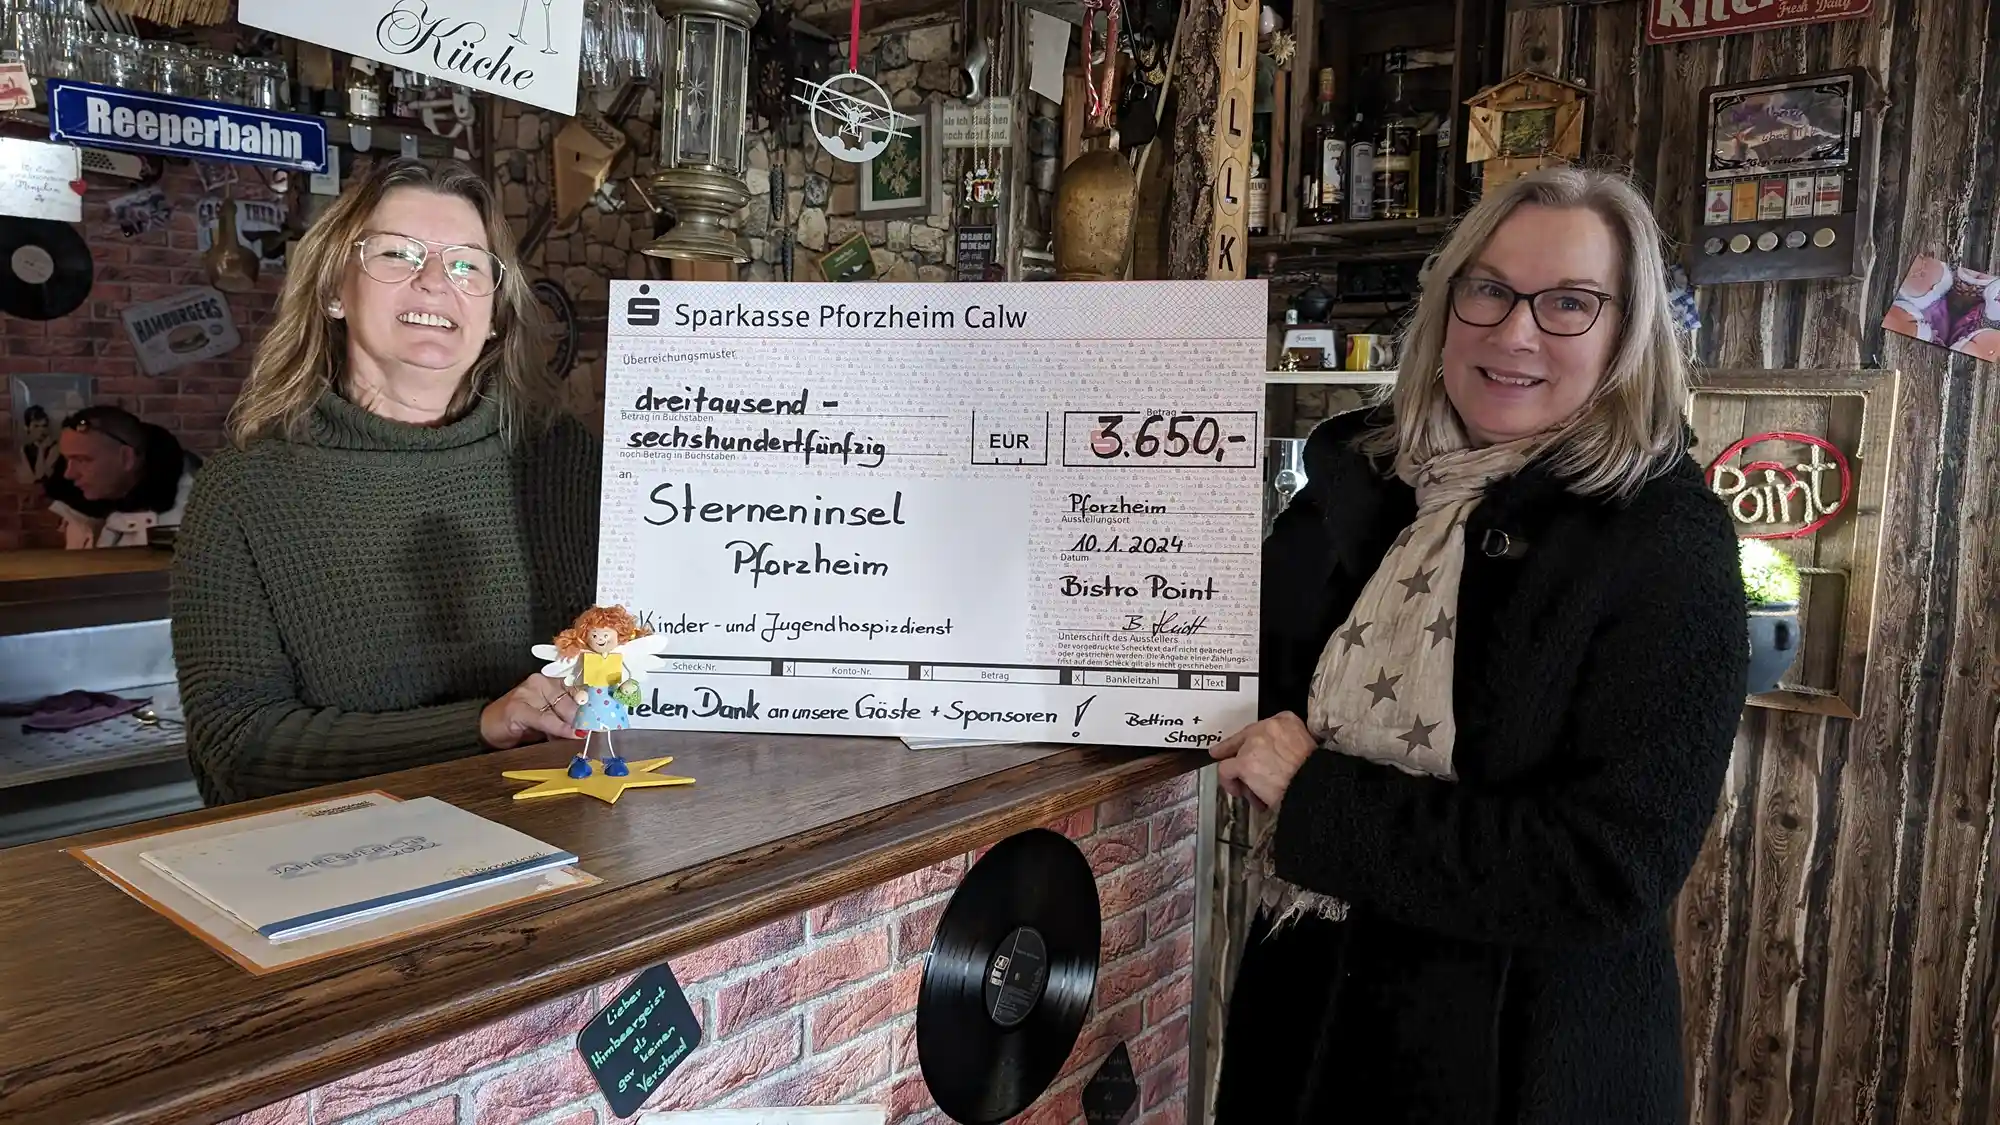 Küche
Reeperbahn
Kitchen
Fresh Daily
HAMBURGERS
Menschen
noch das Kind.
Lord
Point
Sparkasse Pforzheim Calw
Überreichungsmuster
dreitausend -
Betrag in Buchstaben
sechshundertfünfzig
noch Betrag in Buchstaben
EUR
Betrag
3.650,-
an
Sterneninsel
Pforzheim
Kinder- und Jugendhospizdienst
Pforzheim
Ausstellungsort
10.1.2024
Datum
Bistro Point
Unterschrift des Ausstellers
Der vorgedruckte Schecktext darf nicht geändert
oder gestrichen werden. Die Angabe einer Zahlungs-
frist auf dem Scheck gilt als nicht geschrieben.
Scheck-Nr. X Konto-Nr. X Betrag X Bankleitzahl X Text
ielen Dank an unsere Gäste + Sponsoren !
Bettina +
Shappi
JAHRESBERICHT
2022
Lieber
Himbeergeist
als
gar keinen
Verstand